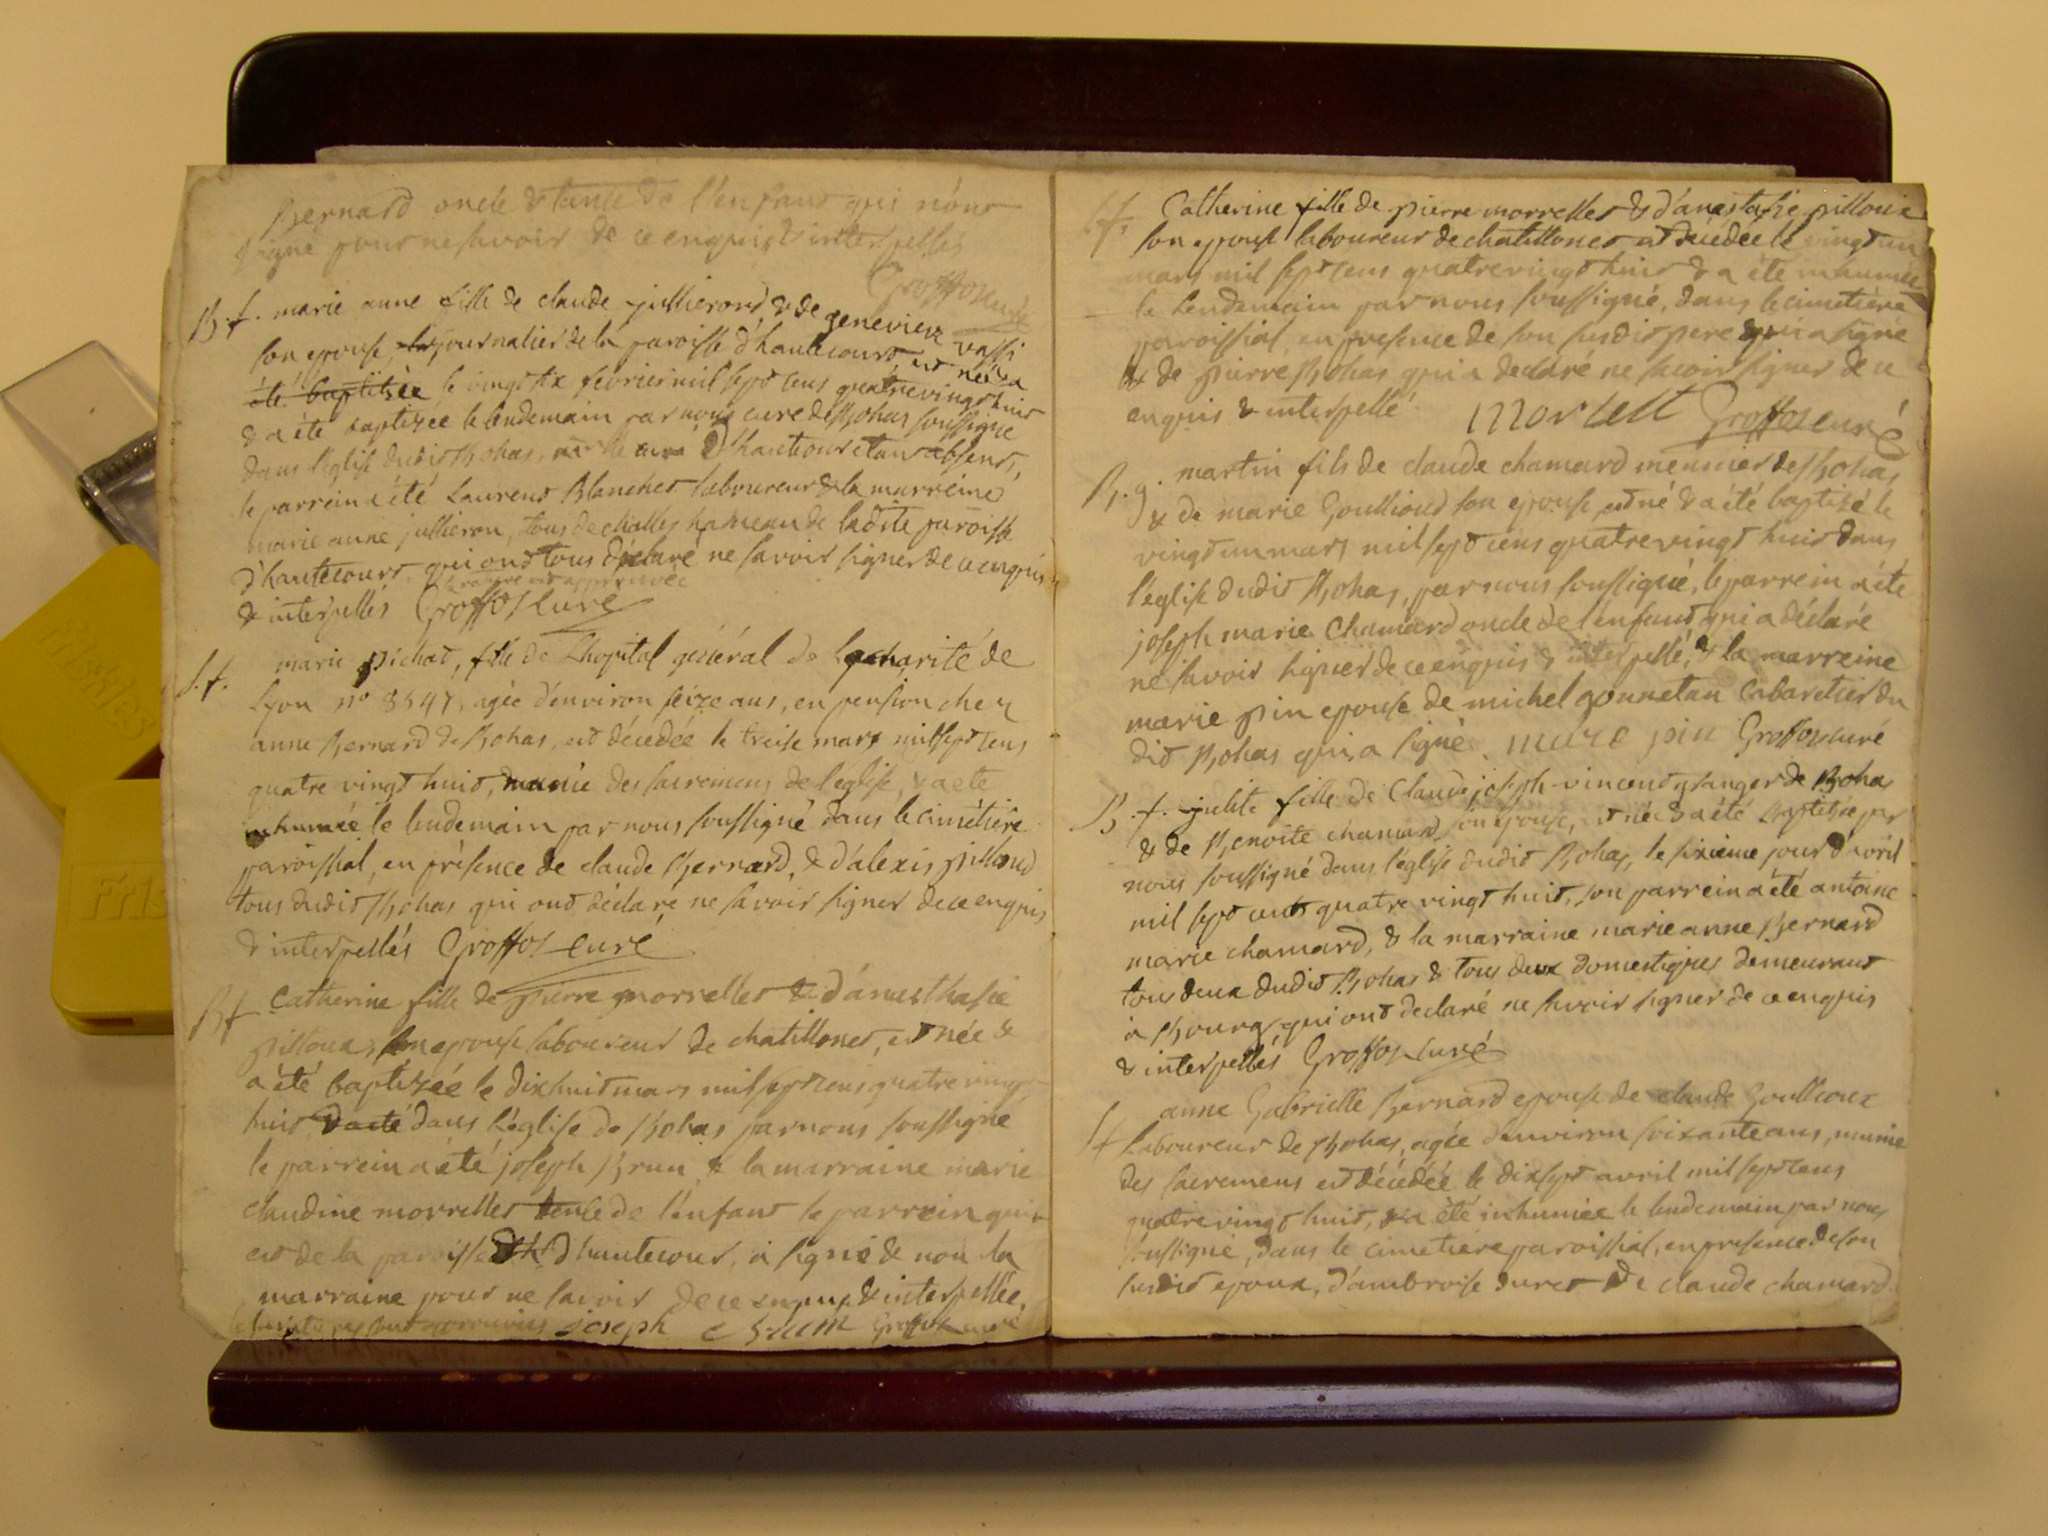 Bernard oncle & tante de l'enfant qui n'ont
signé pour ne savoir de ce enquis & interpellés
Groffoz curé
B. f. marie anne fille de claude jullierond, & de genevieve vassi
son epouse, journalier de la paroisse d'hautecourt, est née & a
été baptisée le vingt six fevrier mil sept cens quatre vingt huit
& a été baptisée le lendemain par nous curé de Bohas soussigné
dans l'eglise dudit Bohas, mr le curé d'hautecourt etant absent,
le parrein a été Laurent Blanchet laboureur & la marreine
marie anne jullieron, tous de challes hameau de ladite paroisse
d'hautecourt qui ont tous déclaré ne savoir signer de ce enquis
& interpellés Groffoz curé
la rayure est approuvée
S. f. marie pichat, fille de L'hopital général de la charité de
Lyon no 8547, agée d'environ seize ans, en pension chez
anne Bernard de Bohas, est décédée le treise mars mil sept cens
quatre vingt huit, munie des sacremens de l'eglise, & a ete
inhumée le lendemain par nous soussigné dans le cimétière
paroissial, en présence de claude Bernard, & d'alexis pilloud
tous dudit Bohas qui ont déclaré ne savoir signer de ce enquis
& interpellés Groffoz curé
B f Catherine fille de pierre morrellet & d'anasthasie
pilloux son epouse laboureur de chatillonet, est née &
a été baptizée le dixhuit mars mil sept cens quatre vingt
huit & a eté dans l'église de Bohas par nous soussigné
le parrein a été joseph Brun & la marraine marie
claudine morrellet tente de l'enfant le parrein qui
est de la paroisse d'hautecour, a signé & non la
marraine pour ne savoir de ce enquise & interpellée,
sont approuvées joseph Brun Groffoz curé
S f. Catherine fille de pierre morrellet & d'anastasie pilloux
son epouse laboureur de chatillonet est décedée le vingt un
mars mil sept cens quatre vingt huit & a été inhumée
le lendemain par nous soussigné, dans le cimetière
paroissial, en presence de son susdit pere qui a signé
& de pierre Bohas qui a declaré ne savoir signer de ce
enquis & interpellé. morellt Groffoz curé
B. g. martin fils de claude chamard meunier de Bohas
& de marie Goullioud son epouse, est né & a été baptizé le
vingt un mars mil sept cens quatre vingt huit dans
l'église dudit Bohas, par nous soussigné, le parrein a été
joseph marie Chamard oncle de l'enfant qui a déclaré
ne savoir signer de ce enquis & interpellé, & la marreine
marie pin epouse de michel gonnetan Cabaretier du
dit Bohas qui a signé. mare pin Groffoz curé
B. f. julite fille de Claude joseph-vincent granger de Bohas
& de Benoite chamard son epouse, est née & a été baptisée par
nous soussigné dans l'église dudit Bohas, le sixieme jour d'avril
mil sept cents quatre vingt huit, son parrein a été antoine
marie chamard, & la marraine marie anne Bernard
tous deux dudit Bohas & tous deux domestiques demeurant
à Bourg, qui ont declaré ne savoir signer de ce enquis
& interpellés Groffoz curé
S f anne Gabrielle Bernard epouse de claude Goullioux
Laboureur de Bohas, agée d'environ soixante ans, munie
des sacremens est décédée le dix sept avril mil sept cens
quatre vingt huit, & a été inhumée le lendemain par nous
soussigné, dans le cimetière paroissial, en presence de son
susdit epoux, d'ambroise duret & de claude chamard
Frisktes
Fris